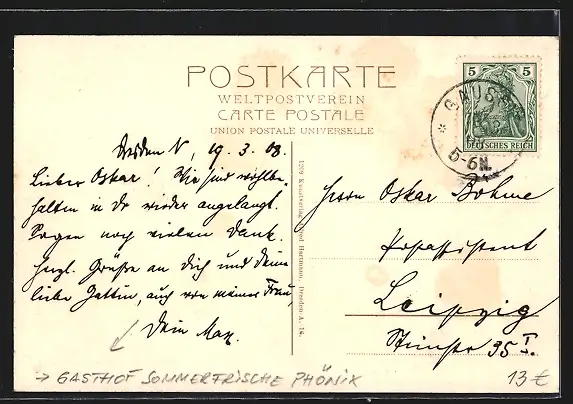 POSTKARTE
WELTPOSTVEREIN
CARTE POSTALE
UNION POSTALE UNIVERSELLE
5 5
DEUTSCHES REICH
5-6N.
Dresden N, 19.3.08.
Lieber Oskar! Wir sind wohlbe-
halten in Dr wieder angelangt.
Sagen noch vielen Dank.
Herzl. Grüße an Dich und Deine
liebe Gattin, auch von meiner Frau,
Dein Max.
Herrn Oskar Böhme
Postassistent
Leipzig
35 I.
1209 Kunstverlag Hartmann, Dresden A. 16.
→ GASTHOF SOMMERFRISCHE PHÖNIX
13 €